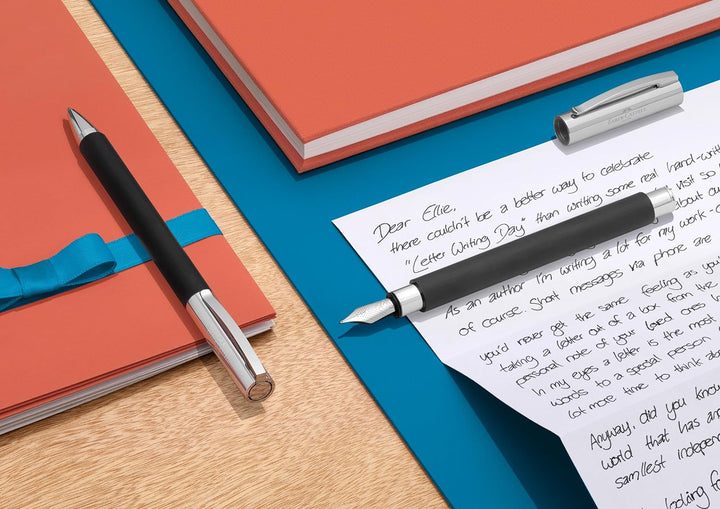 FABER-CASTELL
Dear Ellie,
there couldn't be a better way to celebrate
"Letter Writing Day" than writing some real hand-writ
visit so
about ou
As an author I'm writing a lot for my work-c
of course. Short messages via phone are
you'd never get the same feeling as you
taking a letter out of a box from the
personal note of your loved ones
In my eyes a letter is the most
words to a special person
lot more time to think abo
Anyway, did you know
world that has an
samllest indepen
looking fo